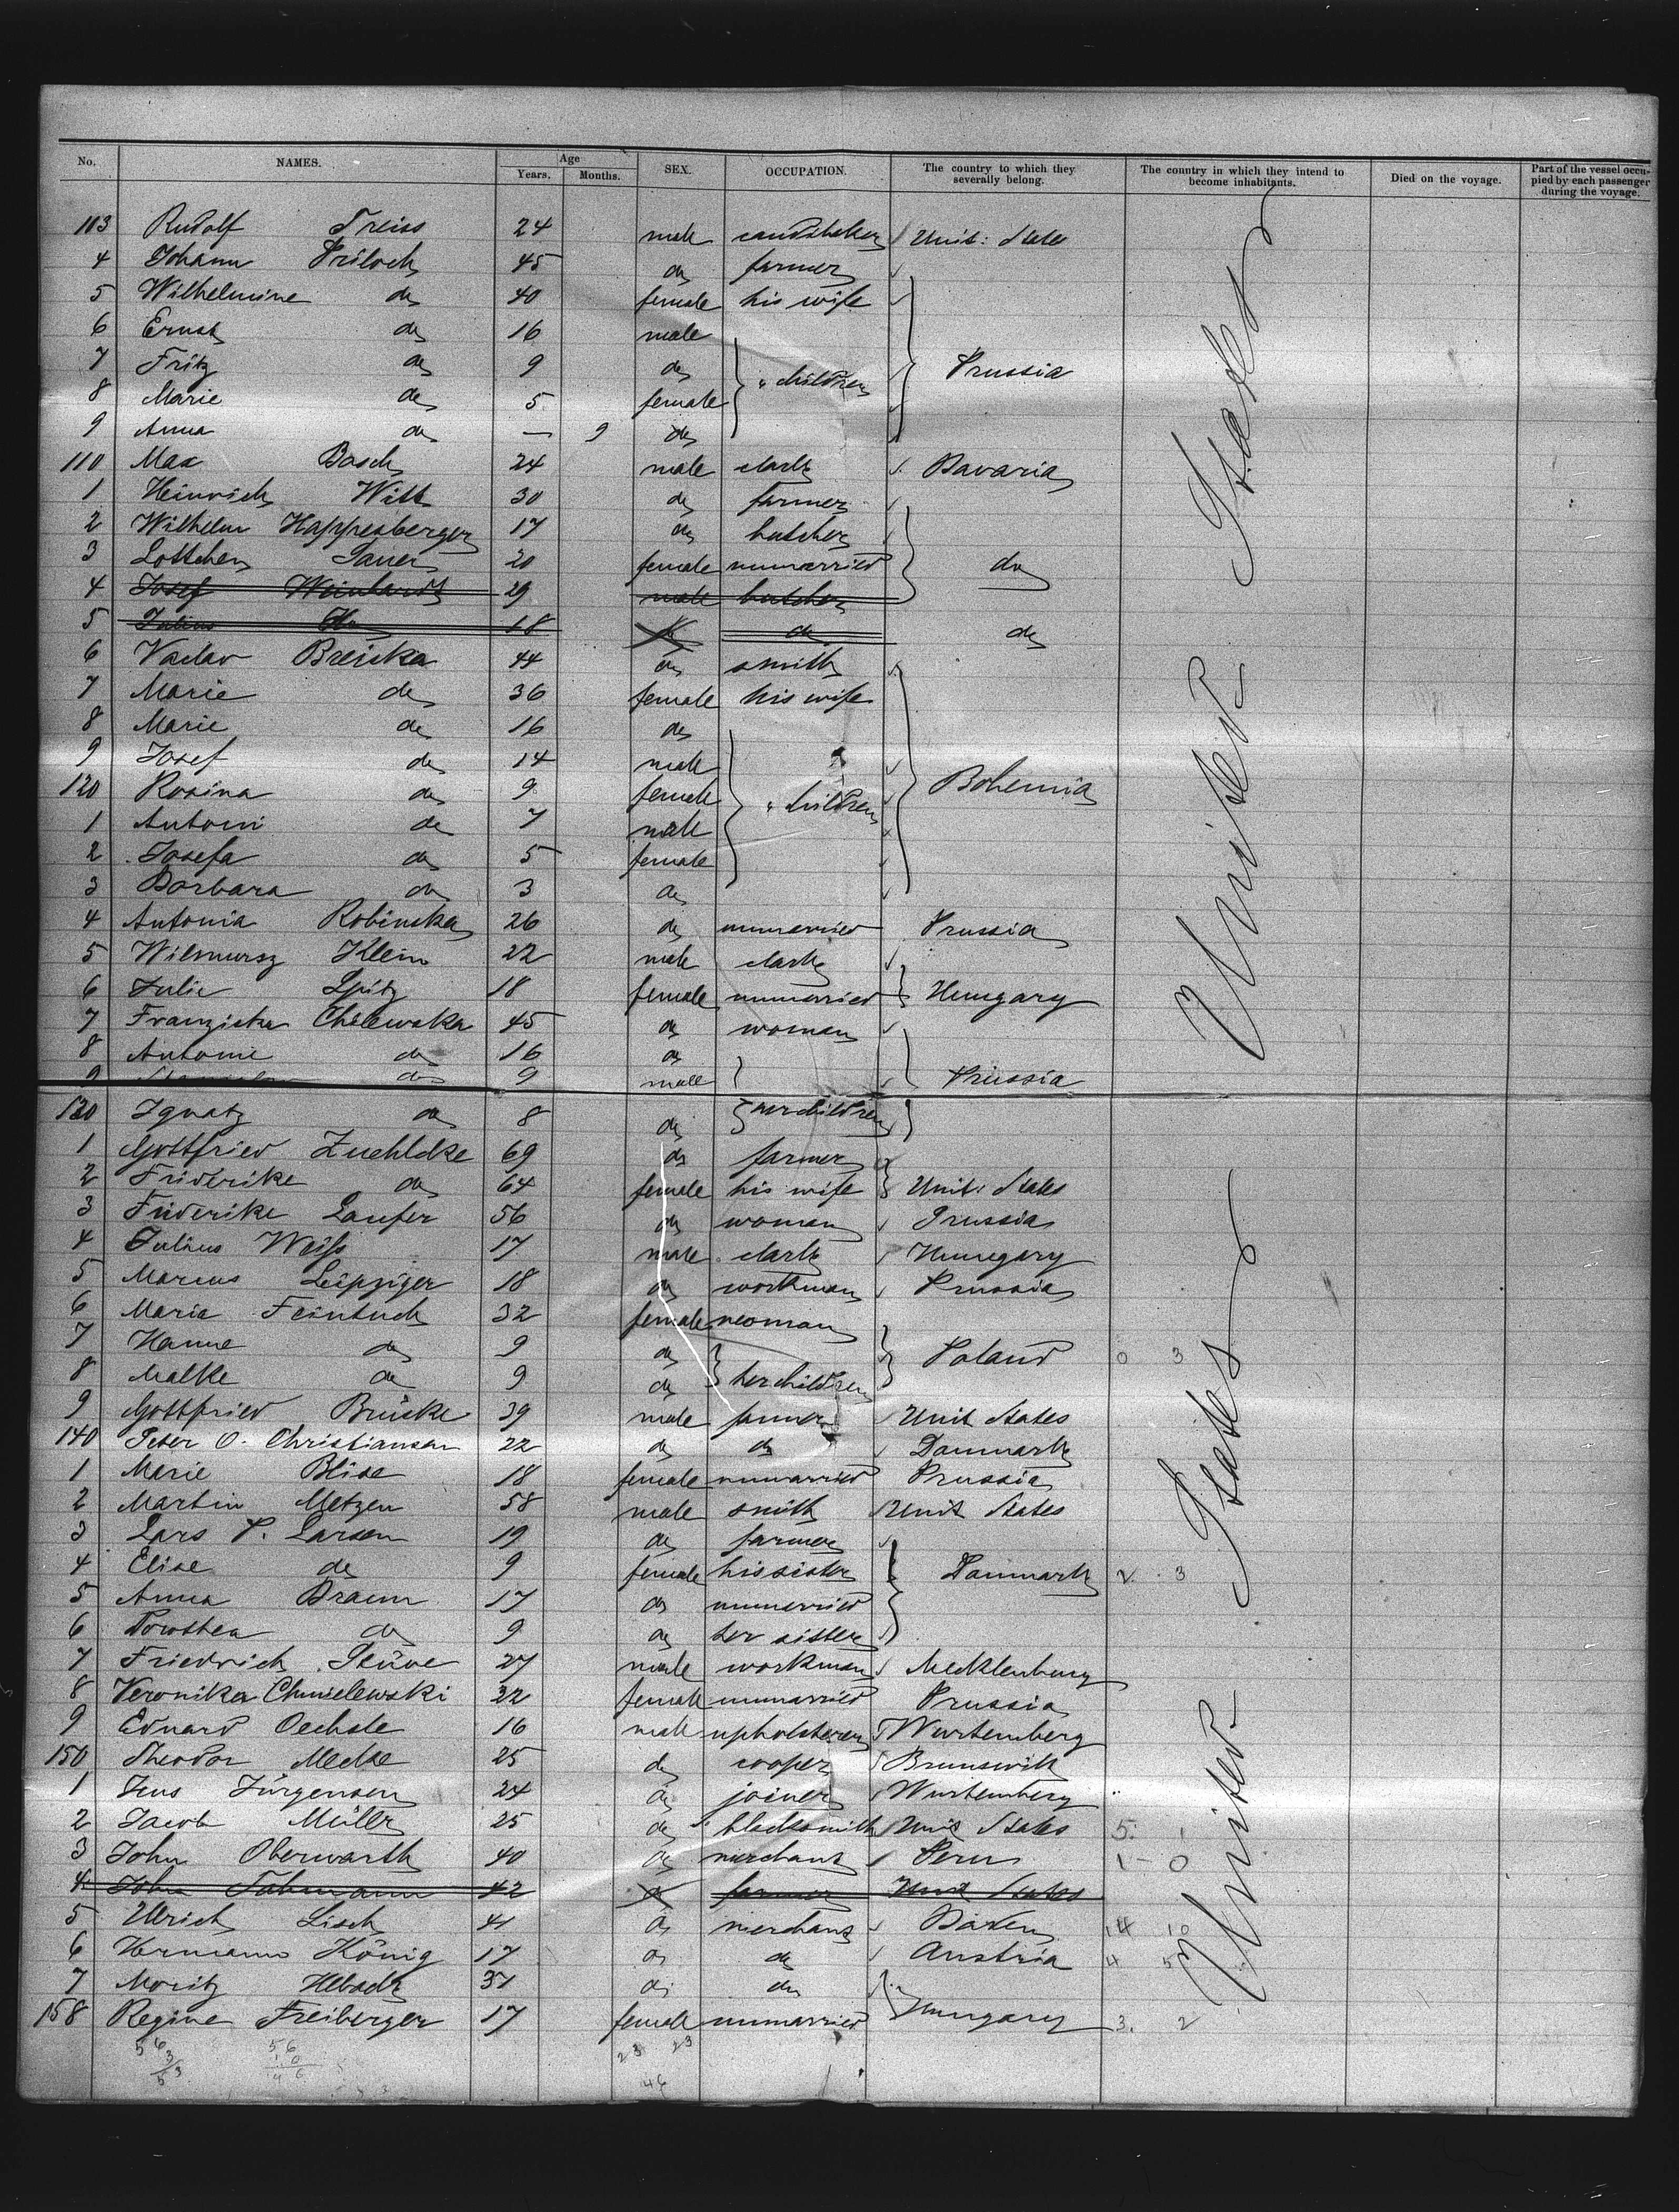 No. NAMES. Age Years. Months. SEX. OCCUPATION. The country to which they severally belong. The country in which they intend to become inhabitants. Died on the voyage. Part of the vessel occupied by each passenger during the voyage.
103 Rudolf Treiss 24 male Unit: States
4 Johann 45 do farmer
5 Wilhelmine do 40 female his wife
6 Ernst do 16 male
7 Fritz do 9 do " children Prussia
8 Marie do 5 female
9 Anna do — 9 do
110 Max Bosch 24 male clark Bavaria
1 Heinrich Witt 30 do farmer
2 Wilhelm Happesberger 17 do butcher
3 Lottchen Sauer 20 female unmarried do
4 Josef Weinhardt 29 male butcher
5 Julius do 18 do do do
6 Vaclav Breicka 44 do smith
7 Marie do 36 female his wife
8 Marie do 16 do
9 Josef do 14 male
120 Rosina do 9 female " children Bohemia
1 Antoni do 7 male
2 Josefa do 5 female
3 Barbara do 3 do
4 Antonia Robinska 26 do unmarried Prussia
5 Klein 22 male clark
6 Julie Spitz 18 female unmarried Hungary
7 Franziska Chilewska 45 do woman
8 Antonie do 16 do
9 Stanislaw do 9 male Prussia
130 Ignatz do 8 do her children
1 Gottfried Zuehlcke 69 do farmer
2 Friderike do 64 female his wife Unit: States
3 Friderike Laufer 56 do woman Prussia
4 Julius Weiss 17 male clark Hungary
5 Marcus Leipziger 18 do workman Prussia
6 Maria Feintuch 32 female woman
7 Hanne do 9 do Poland 0 3
8 Malke do 9 do her children
9 Gottfried Bruske 39 male farmer Unit States
140 Peter O. Christiansen 22 do do Danmark
1 Marie Blise 18 female unmarried Prussia
2 Martin Metzen 58 male smith Unit States
3 Lars P. Larsen 19 do farmer
4 Elise do 9 female his sister Danmark 2. 3
5 Anna Braem 17 do unmarried
6 Dorothea do 9 do her sister
7 Friedrich Stüve 27 male workman Mecklenburg
8 Veronika Chmielewski 22 female unmarried Prussia
9 Eduard Oechsle 16 male upholsterer Wurtemberg
150 Theodor Mecke 25 do cooper Brunswik
1 Jens Jürgensen 24 do joiner Wurtemberg
2 Jacob Müller 25 do blacksmith Unit States 5. 1
3 John Oberwarth 40 do merchant Peru 1 - 0
4 John 42 do farmer Unit States
5 Ulrich Lisch 41 do merchant Baden 14 10
6 Hermann König 17 do do Austria 4 5
7 Moritz 37 do do
158 Regine Freiberger 17 female unmarried Hungary 3. 2
United States
United States
56 56 23 23
3 10
53 46 46